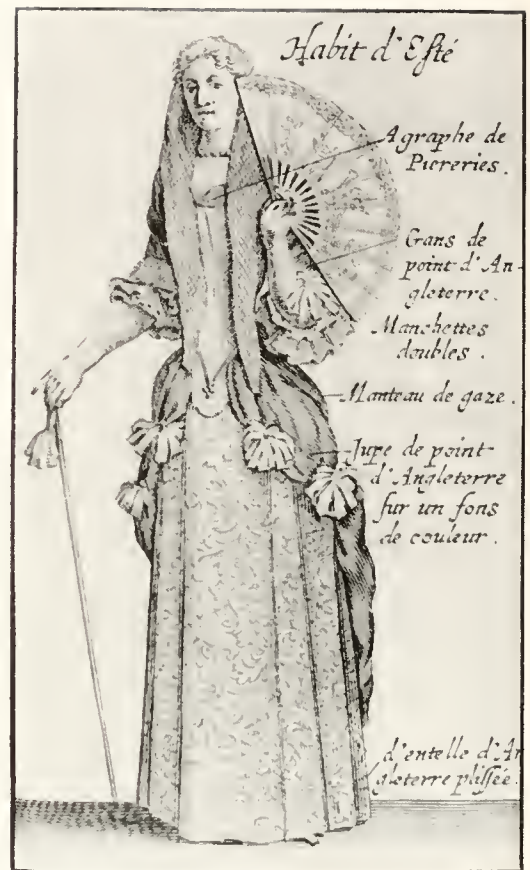 Habit d'Esté
Agraphe de
Piereries.
Gans de
point d'An-
gleterre.
Manchettes
doubles.
Manteau de gaze.
Jupe de point
d'Angleterre
sur un fons
de couleur.
d'entelle d'An
gleterre plissée.